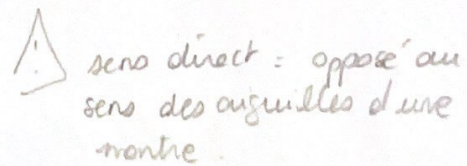 ! sens direct = opposé au
sens des aiguilles d'une
montre